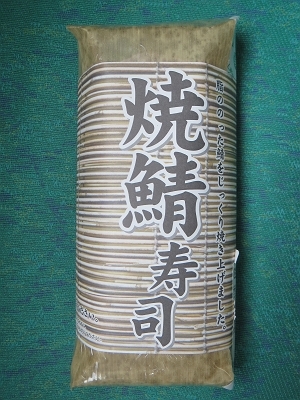 脂ののった鯖をじっくり焼き上げました。
焼鯖寿司